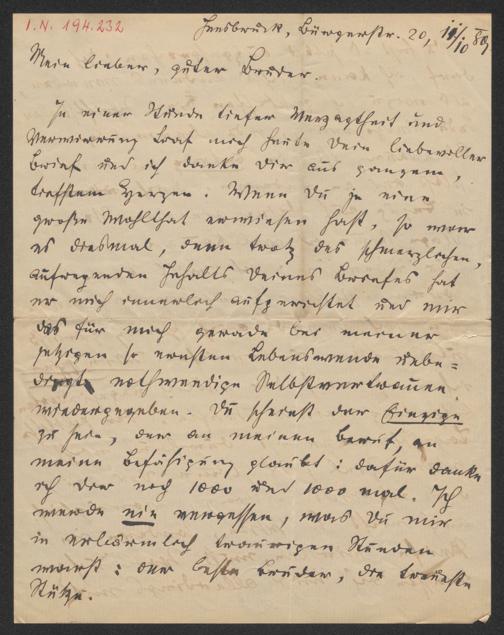 I. N. 194.232
Innsbruck, Bürgerstr. 20, 11/10 89
Mein lieber, guter Bruder.
In einer Stunde tiefer Verzagtheit und
Verwirrung traf mich heute Dein liebevoller
Brief und ich danke Dir aus ganzem,
tiefstem Herzen. Wenn Du je eine
große Wohlthat erwiesen hast, so war
es diesmal, denn trotz des schmerzlichen,
aufregenden Inhalts Deines Briefes hat
er mich innerlich aufgerichtet und mir
das für mich gerade bei meiner
jetzigen so ernsten Lebenswende unbe=
dingt nothwendige Selbstvertrauen
wiedergegeben. Du scheinst der Einzige
zu sein, der an meinen Beruf, an
meine Befähigung glaubt: dafür danke
ich Dir noch 1000 und 1000 mal. Ich
werde nie vergessen, was Du mir
in traurigen Stunden
warst: der beste Bruder, die treueste
Stütze.